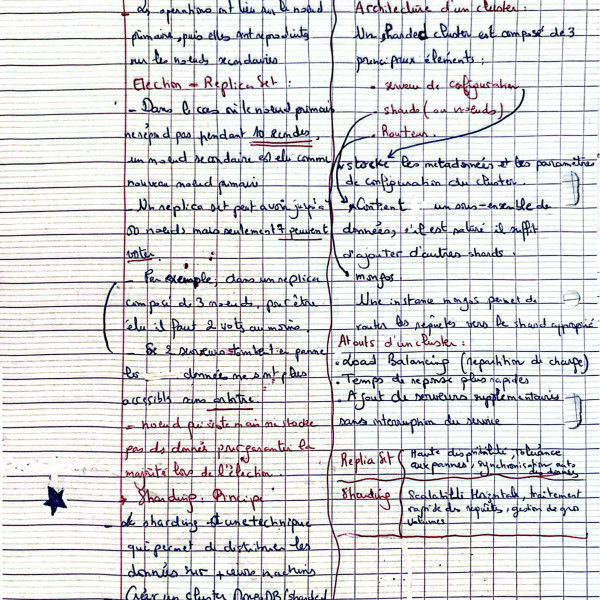 - Les opérations ont lieu sur le noeud
primaire, puis elles sont reproduits
sur les noeuds secondaires
Election - Replica Set :
- Dans le cas où le noeud primaire
ne répond pas pendant 10 secondes,
un noeud secondaire est élu comme
nouveau noeud primaire
- Un replica set peut avoir jusqu'à
50 noeuds mais seulement 7 peuvent
voter.
- Par exemple, dans un replica
composé de 3 noeuds, pour être
élu il faut 2 votes au moins.
- Si 2 serveurs tombent en panne
les données ne sont plus
accessibles sans arbitre.
= noeud qui vote mais ne stocke
pas de données pour garantir la
majorité lors de l'élection.
Sharding : Principe
- Le sharding est une technique
qui permet de distribuer les
données sur +eurs machines
Créer un cluster MongoDB (sharded
Architecture d'un cluster :
Un sharded cluster est composé de 3
principaux éléments :
• serveur de configuration
• shards (ou noeuds)
• Routeur.
stocke les metadonnées et les paramètres
de configuration du cluster.
Contient un sous-ensemble de
données, s'il est saturé il suffit
d'ajouter d'autres shards.
mongos.
Une instance mongos permet de
router les requêtes vers le shard approprié
Atouts d'un cluster :
• Load Balancing (repartition de charge)
• Temps de reponse plus rapides
• Ajout de serveurs supplementaires
sans interruption du service
Replica Set
Haute disponibilité, tolérance
aux pannes, synchronisation auto
de données
Sharding
Scalabilité Horizontale, traitement
rapide des requêtes, gestion de gros
volumes